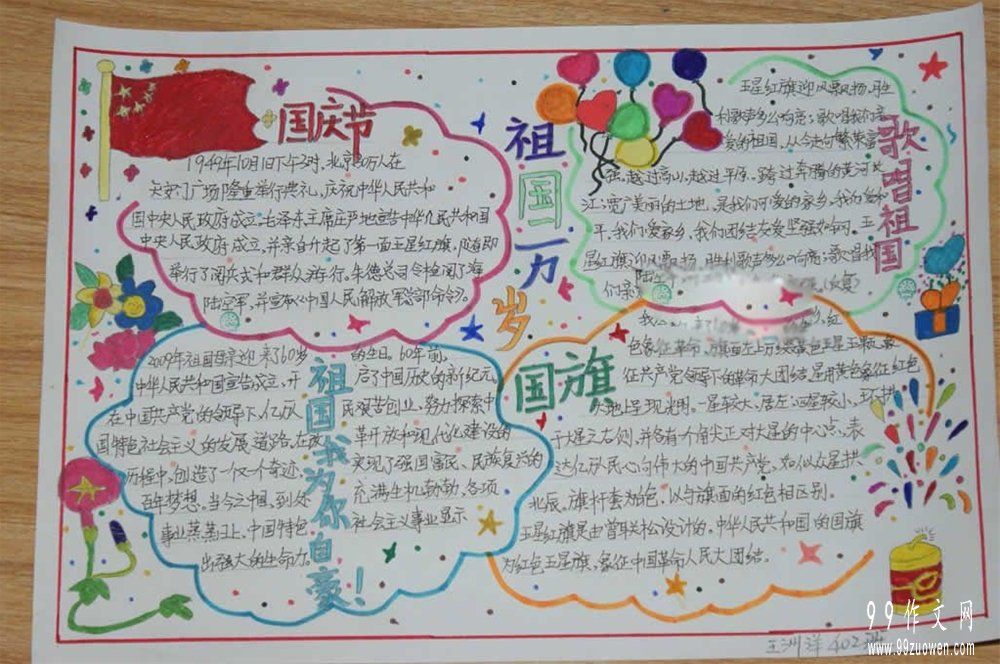 国庆节
1949年10月1日下午3时,北京30万人在
天安门广场隆重举行典礼,庆祝中华人民共和
国中央人民政府成立。毛泽东主席庄严地宣告中华人民共和国
中央人民政府成立,并亲自升起了第一面五星红旗,随即
举行了阅兵式和群众游行。朱德总司令检阅了海
陆空军,并宣布《中国人民解放军总部命令》。
祖国万岁
歌唱祖国
五星红旗迎风飘扬,胜
利歌声多么响亮;歌唱我们亲
爱的祖国,从今走向繁荣富
强。越过高山,越过平原,跨过奔腾的黄河长
江;宽广美丽的土地,是我们可爱的家乡。我们爱和
平,我们爱家乡,我们团结友爱坚强如钢。五
星红旗迎风飘扬,胜利歌声多么响亮;歌唱我
们亲
祖国我为你自豪!
2009年祖国母亲迎来了60岁的生日。60年前,
中华人民共和国宣告成立,开启了中国历史的新纪元,
在中国共产党的领导下,亿万人民艰苦创业,努力探索中
国特色社会主义的发展道路,在改革开放和现代化建设的
历程中,创造了一个又一个奇迹,实现了强国富民、民族复兴的
百年梦想。当今中国,到处充满生机勃勃,各项
事业蒸蒸日上,中国特色社会主义事业显示
出强大的生命力。
国旗
红
色象征革命,旗面左上方缀黄色五星五颗,象
征共产党领导下的革命大团结,星用黄色象征红色
大地上呈现光明。一星较大,居左;四星较小,环拱
于大星之右侧,并各有一个角尖正对大星的中心点,表
达亿万人民心向伟大的中国共产党,如似众星拱
北辰。旗杆套为白色,以与旗面的红色相区别。
五星红旗是由曾联松设计的。中华人民共和国的国旗
为红色五星旗,象征中国革命人民大团结。
王洲洋 402班
99作文网
www.99zuowen.com